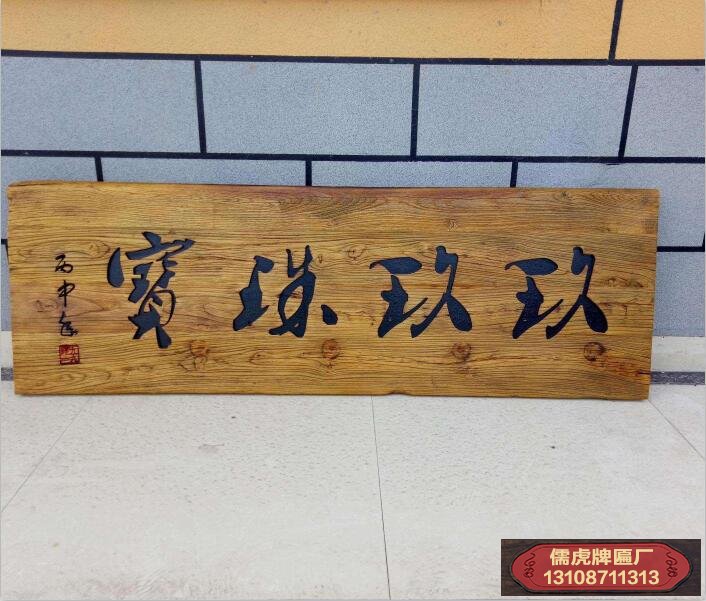 玖玖珠寶
丙申冬
儒虎牌匾厂
13108711313